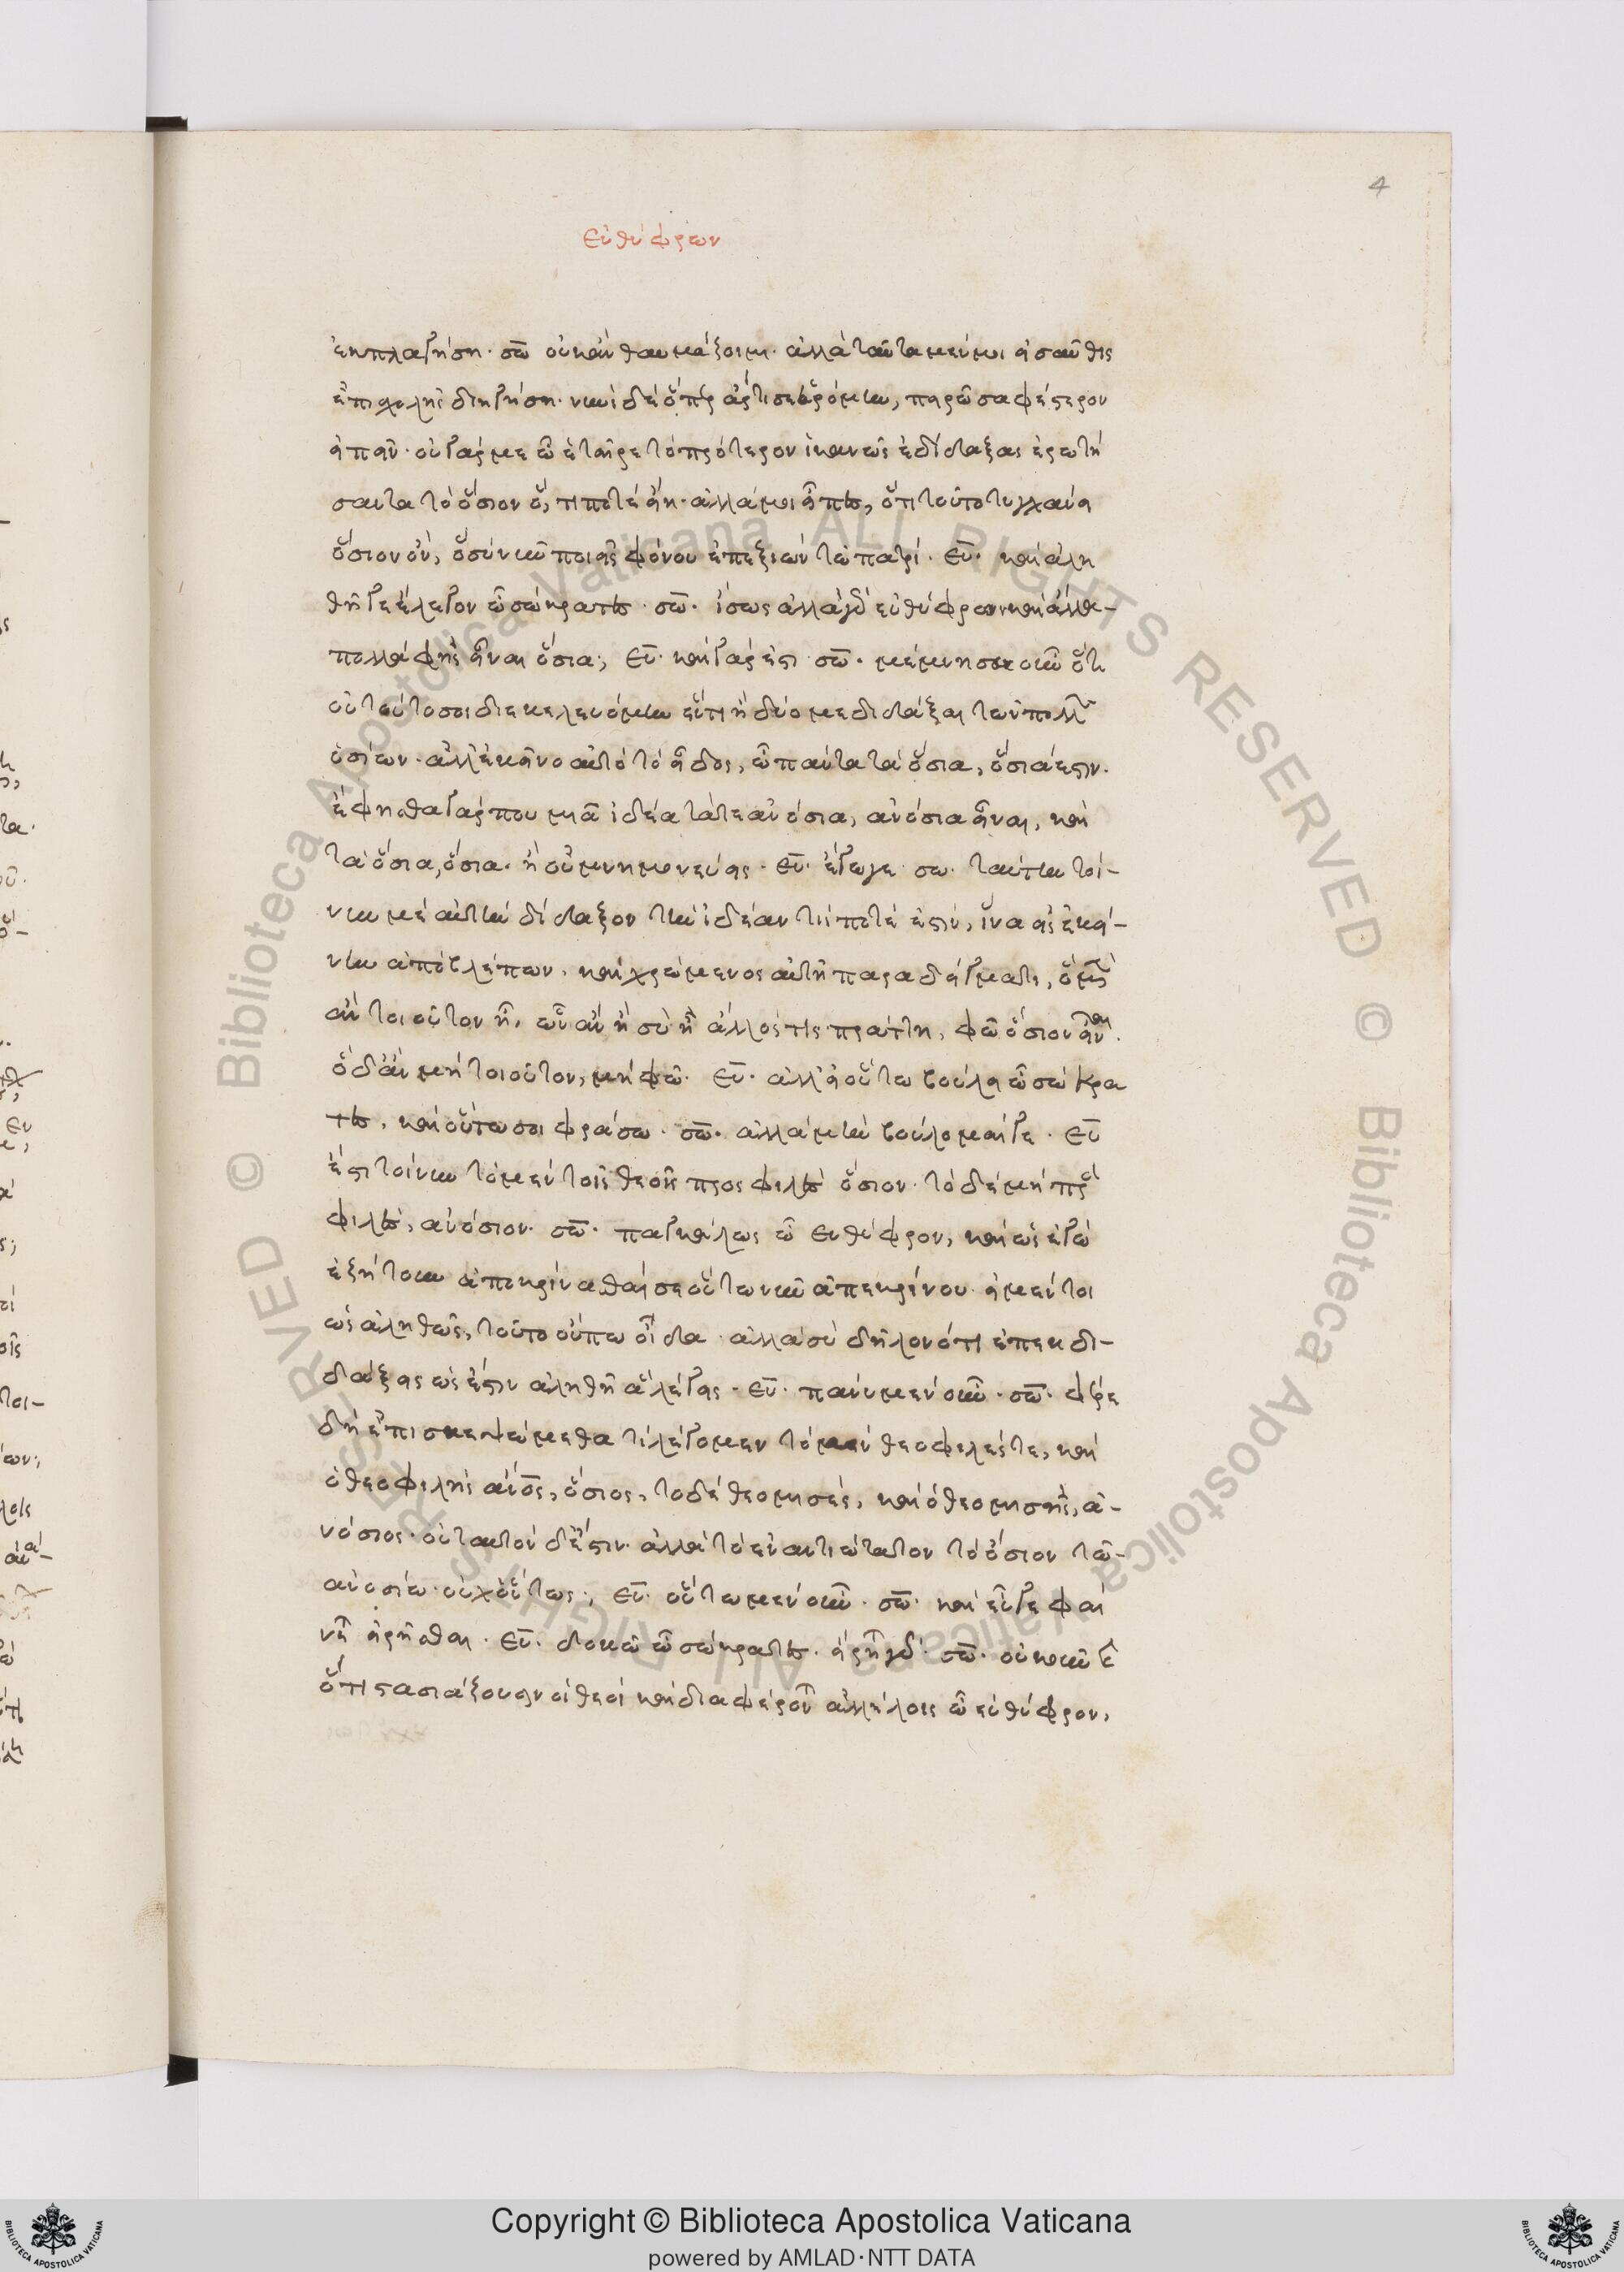 4
Εὐθύφρων
ἐκπλαγήσῃ. σω̅ οὐκ ἂν θαυμάζοιμι. ἀλλὰ ταῦτα μέν μοι εἰσαῦθις
ἐπισχολῆς διηγήσῃ. νυνὶ δὲ ὅπερ ἄρτι σε ἠρόμην, πειρῶ σαφέστερον
εἰπεῖν. οὐ γάρ με ὦ ἑταῖρε τὸ πρότερον ἱκανῶς ἐδίδαξας ἐρωτή
σαντα τὸ ὅσιον ὅ, τι ποτέ εἴη. ἀλλά μοι εἶπες, ὅτι τοῦτο τυγχάνει
ὅσιον ὄν, ὃ σὺ νῦν ποιεῖς φόνου ἐπεξιὼν τῷ πατρί. ευ̅. καὶ ἀλη
θῆ γε ἔλεγον ὦ σώκρατες. σω̅. ἴσως ἀλλὰ γὰρ εὐθύφρων καὶ ἄλλα-
πολλὰ φῂς εἶναι ὅσια; ευ̅. καὶ γάρ ἐστι. σω̅. μέμνησαι οὖν ὅτι
οὐ τοῦτό σοι διεκελευόμην ἕν τι ἢ δύο με διδάξαι τῶν πολλῶν
ὁσίων. ἀλλ' ἐκεῖνο αὐτὸ τὸ εἶδος, ᾧ πάντα τὰ ὅσια, ὅσιά ἐστιν.
ἔφησθα γάρ που μιᾷ ἰδέᾳ τά τε ἀνόσια, ἀνόσια εἶναι, καὶ
τὰ ὅσια, ὅσια. ἢ οὐ μνημονεύεις. ευ̅. ἔγωγε. σω. ταύτην τοί-
νυν με αὐτὴν δίδαξον τὴν ἰδέαν τίς ποτέ ἐστιν, ἵνα εἰς ἐκεί-
νην ἀποβλέπων, καὶ χρώμενος αὐτῇ παραδείγματι, ὃ μὲν
ἂν τοιοῦτον ᾖ, ὧν ἂν ἢ σὺ ἢ ἄλλός τις πράττῃ, φῶ ὅσιον εἶναι.
ὃ δ' ἂν μὴ τοιοῦτον, μὴ φῶ. ευ̅. ἀλλ' εἰ οὕτω βούλει ὦ σώκρα
τες, καὶ οὕτω σοι φράσω. σω̅. ἀλλὰ μὴν βούλομαί γε. ευ̅
ἔστι τοίνυν τὸ μὲν τοῖς θεοῖς προσφιλὲς ὅσιον. τὸ δὲ μὴ προσ
φιλὲς, ἀνόσιον. σω̅. παγκάλως ὦ Ευθύφρον, καὶ ὡς ἐγὼ
ἐζήτουν ἀποκρίνασθαί σε οὕτω νῦν ἀπεκρίνου. εἰ μέντοι
ὡς ἀληθῶς, τοῦτο οὔπω οἶδα. ἀλλὰ σὺ δῆλον ὅτι ἐπεκδι-
δάξεις ὡς ἔστιν ἀληθῆ ἃ λέγεις. ευ̅. πάνυ μὲν οὖν. σω̅. φέρε
δὴ ἐπισκεψώμεθα τί λέγομεν τὸ μὲν θεοφιλές τε, καὶ
ὁ θεοφιλὴς ἄνος, ὅσιος, το δὲ θεομισές, καὶ ὁ θεομισὴς, ἀ-
νόσιος. οὐ ταυτὸν δ' ἐστιν. ἀλλὰ τὸ ἐναντιώτατον τὸ ὅσιον τῷ-
ἀνοσίῳ. οὐχ οὕτως; ευ̅. οὕτω μὲν οὖν. σω̅. καὶ εὖ γε φαί
νεται εἰρῆσθαι. ευ̅. δοκῶ ὦ σώκρατες. εἴρηται γάρ. σω̅. οὐκοῦν καὶ
ὅτι στασιάζουσιν οἱ θεοὶ καὶ διαφέρονται ἀλλήλοις ὦ εὐθύφρον,
© Biblioteca Apostolica Vaticana ALL RIGHTS RESERVED
Copyright © Biblioteca Apostolica Vaticana
powered by AMLAD·NTT DATA
BIBLIOTECA APOSTOLICA VATICANA